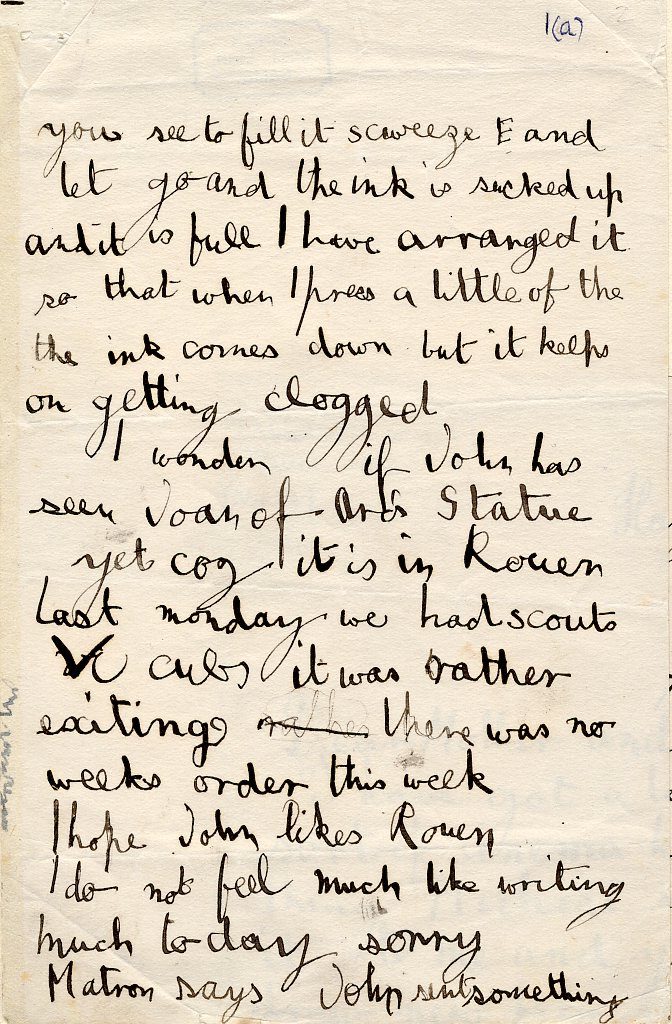 1(a)
you see to fill it scweeze E and
let go and the ink is sucked up
and it is full I have arranged it
so that when I press a little of the
the ink comes down but it keeps
on getting clogged
I wonder if John has
seen Joan of Arc's Statue
yet coz it is in Rouen
Last monday we had scouts
V C cubs it was rather
exiting rather there was no
weeks order this week
I hope John likes Rouen
I do not feel much like writing
much to day sorry
Matron says John sent something